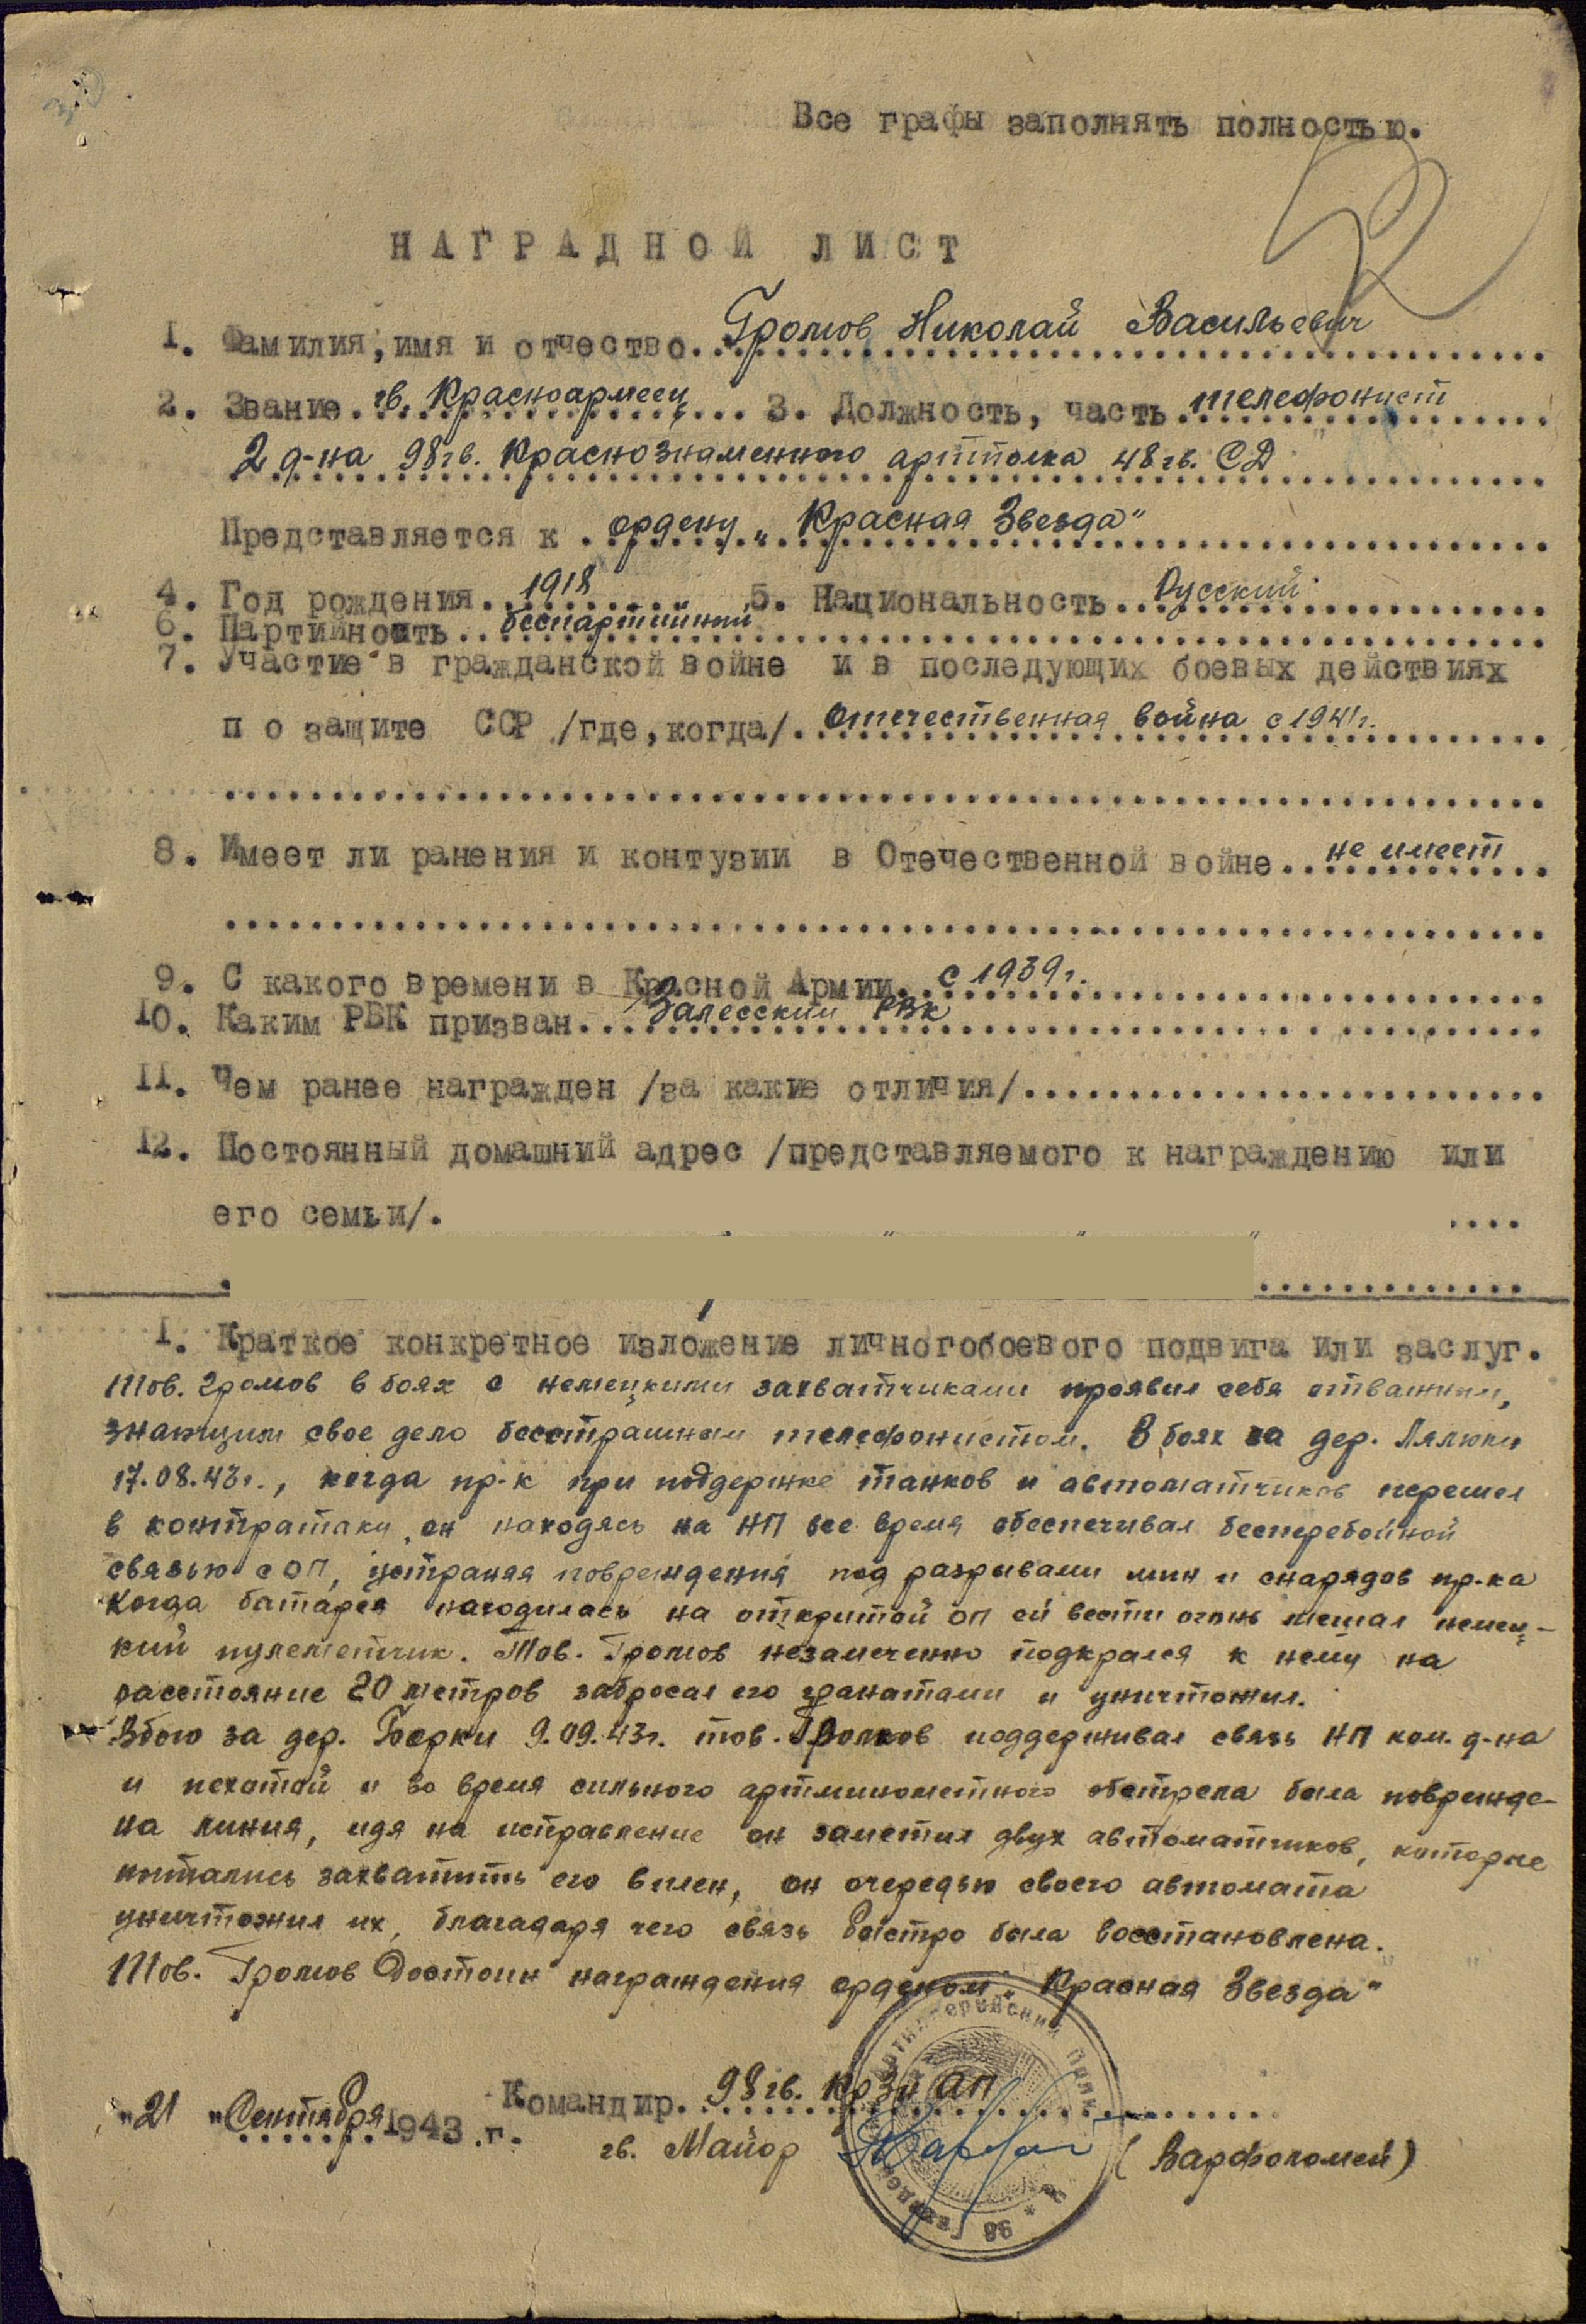 Все графы заполнять полностью.
НАГРАДНОЙ ЛИСТ
1. Фамилия, имя и отчество... Громов Николай Васильевич
2. Звание. гв. Красноармеец... 3. Должность, часть. телефонист
2 д-на 98 гв. Краснознаменного артполка 48 гв. СД
Представляется к. ордену „Красная Звезда"
4. Год рождения.. 1918 5. Национальность.. Русский
6. Партийность.. беспартийный
7. Участие в гражданской войне и в последующих боевых действиях
по защите ССР /где, когда/. Отечественная война с 1941 г.
8. Имеет ли ранения и контузии в Отечественной войне.. не имеет
9. С какого времени в Красной Армии.. с 1939 г.
10. Каким РВК призван... Залесским РВК
11. Чем ранее награжден /за какие отличия/...
12. Постоянный домашний адрес /представляемого к награждению или
его семьи/.
1. Краткое конкретное изложение личногобоевого подвига или заслуг.
Тов. Громов в боях с немецкими захватчиками проявил себя отважным,
знающим свое дело бесстрашным телефонистом. В боях за дер. Лялюки
17.08.43 г., когда пр-к при поддержке танков и автоматчиков перешел
в контратаку, он находясь на НП все время обеспечивал бесперебойной
связью с ОП, устраняя повреждения под разрывами мин и снарядов пр-ка
Когда батарея находилась на открытой ОП ей вести огонь мешал немец-
кий пулеметчик. Тов. Громов незамеченно подкрался к нему на
расстояние 20 метров забросал его гранатами и уничтожил.
В бою за дер. Борки 9.09.43 г. тов. Громов поддерживал связь НП ком. д-на
и пехотой и во время сильного артминометного обстрела была поврежде-
на линия, идя на исправление он заметил двух автоматчиков, которые
пытались захватить его в плен, он очередью своего автомата
уничтожил их, благодаря чего связь быстро была восстановлена.
Тов. Громов Достоин награждения орденом „Красная Звезда"
„21 „ Сентября 1943 .г. Командир. 98 гв. Кр Зн АП
гв. Майор (Варфоломей)
Артиллерийский Полк
98 Гвардей